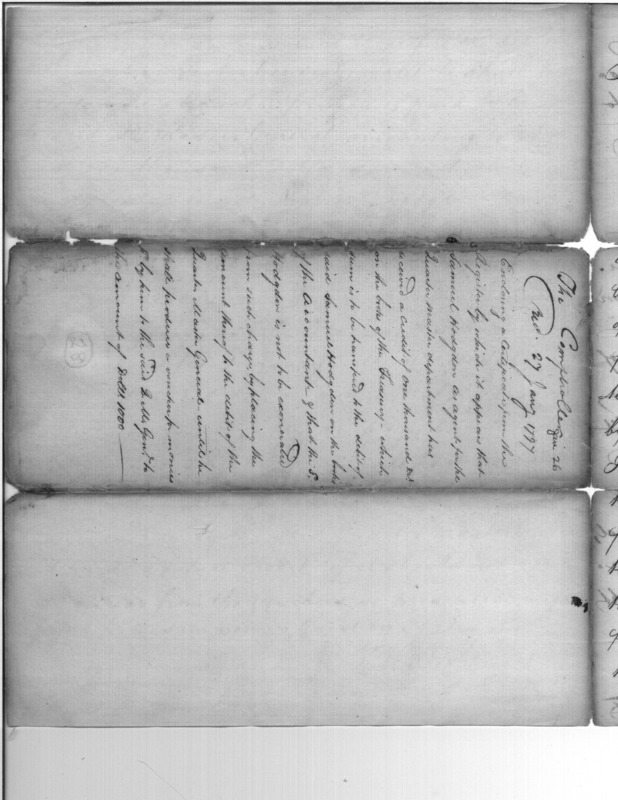 The Comptroller Jan. 26
Recd. 27 Jany 1797
Enclosing a Certificate from the
Register by which it appears that
Samuel Hodgdon as agent for the
Quarter master department has
received a credit of one thousand
on the books of the Treasury - which
sum is to be transfered to the debit of
said Samuel Hodgdon on the books
of the Accountant - & that the S.
Hodgdon is not to be exonerated
from such charge by placing the
amount thereof to the debit of the
Quarter Master General - until he
shall produce a voucher for monies
by him to the said Q Mr Genl. to
the amount of Dolls 1000
28